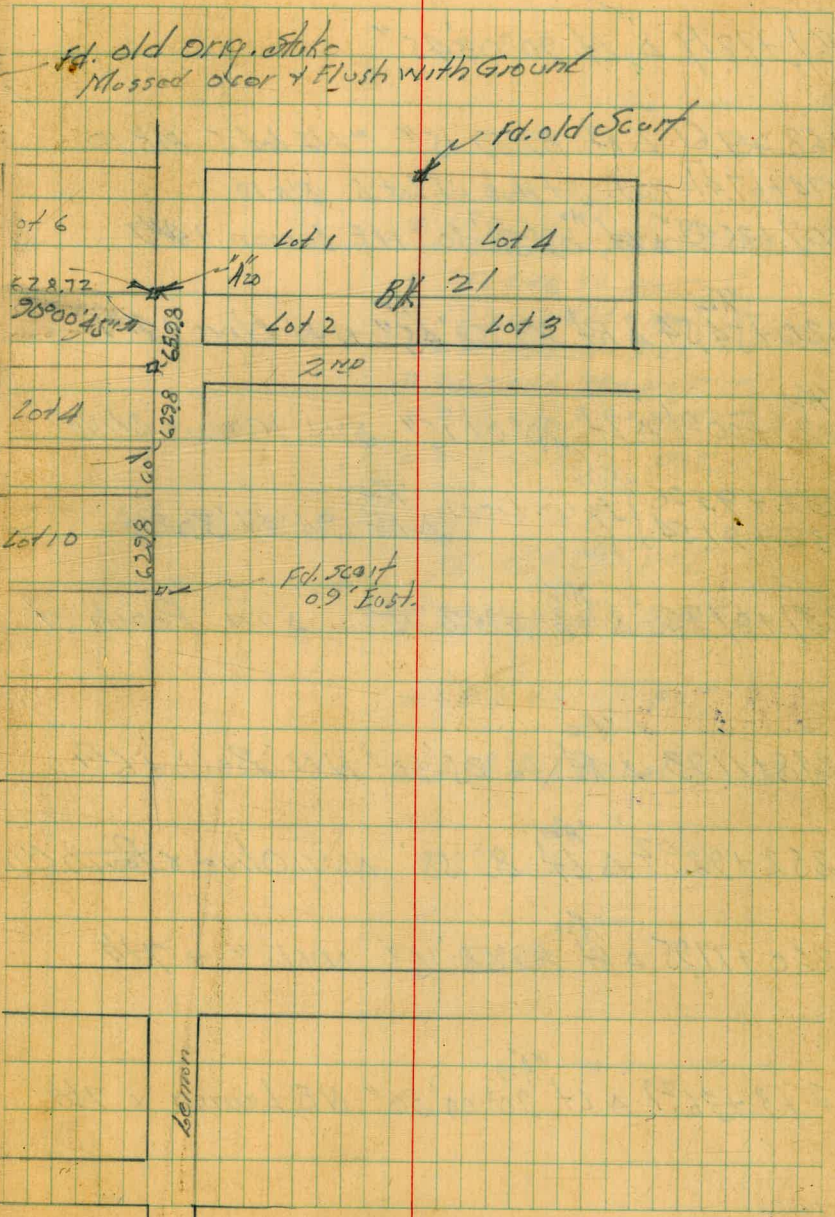 Fd. old Orig. Stake
Mossed over & Flush with Ground
Fd. old Scant
ot 6
Lot 1
Lot 4
"A"20
628.72
BK 21
90°00'45"
659.8
Lot 2
Lot 3
2ND
Lot 4
629.8
60
Lot 10
629.8
Fd. scant
0.9' East.
Lemon